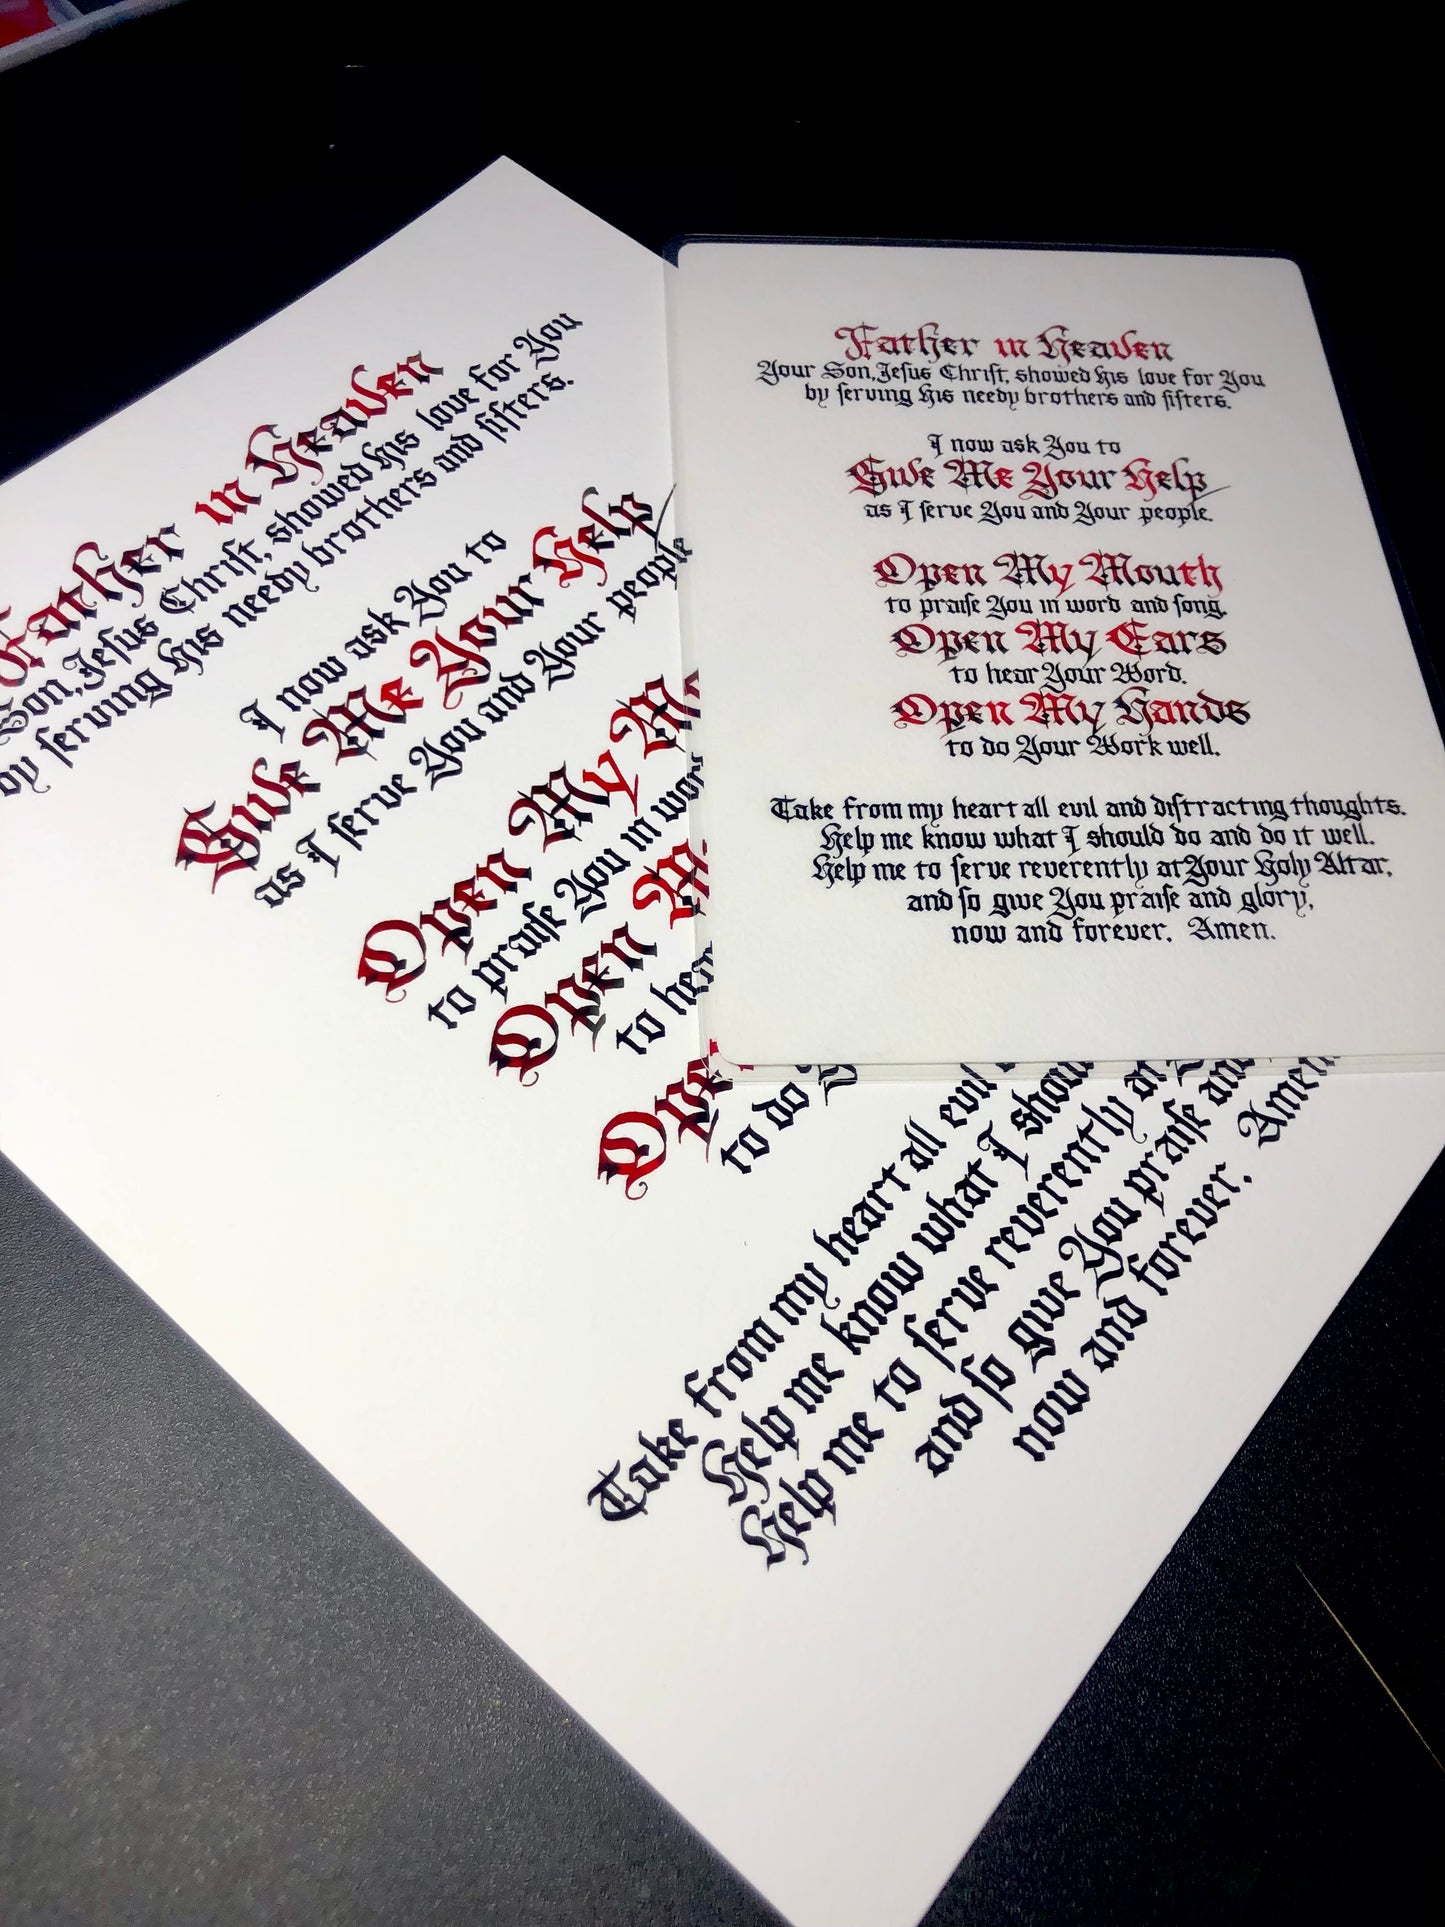 Father in Heaven
Son, Jeſus Chriſt, showed his love for You
by ſerving His needy brothers and ſiſters.
I now ask You to
Give Me Your Help
as I ſerve You and Your people
Open My Mo
to praiſe You in wor
Open M
to hea
Ope
to do
Take from my heart all evil
Help me know what I shou
Help me to ſerve reverently
and ſo give You praiſe and
now and forever. Amen
Father in Heaven
Your Son, Jeſus Chriſt, showed his love for You
by ſerving His needy brothers and ſiſters.
I now ask You to
Give Me Your Help
as I ſerve You and Your people.
Open My Mouth
to praiſe You in word and ſong.
Open My Ears
to hear Your Word.
Open My Hands
to do Your Work well.
Take from my heart all evil and diſtracting thoughts.
Help me know what I should do and do it well.
Help me to ſerve reverently at Your Holy Altar,
and ſo give You praiſe and glory,
now and forever. Amen.